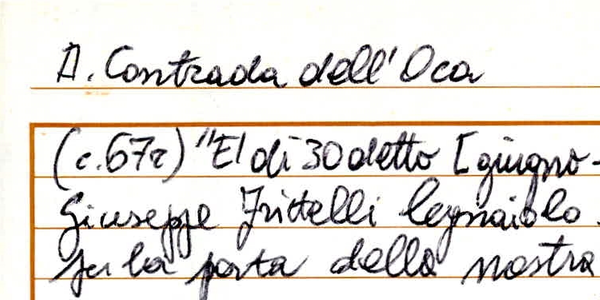 A. Contrada dell'Oca
(c.67r) "E/ di 30 detto [giugno-
Giuseppe Frittelli legnaiolo
per la porta della nostra